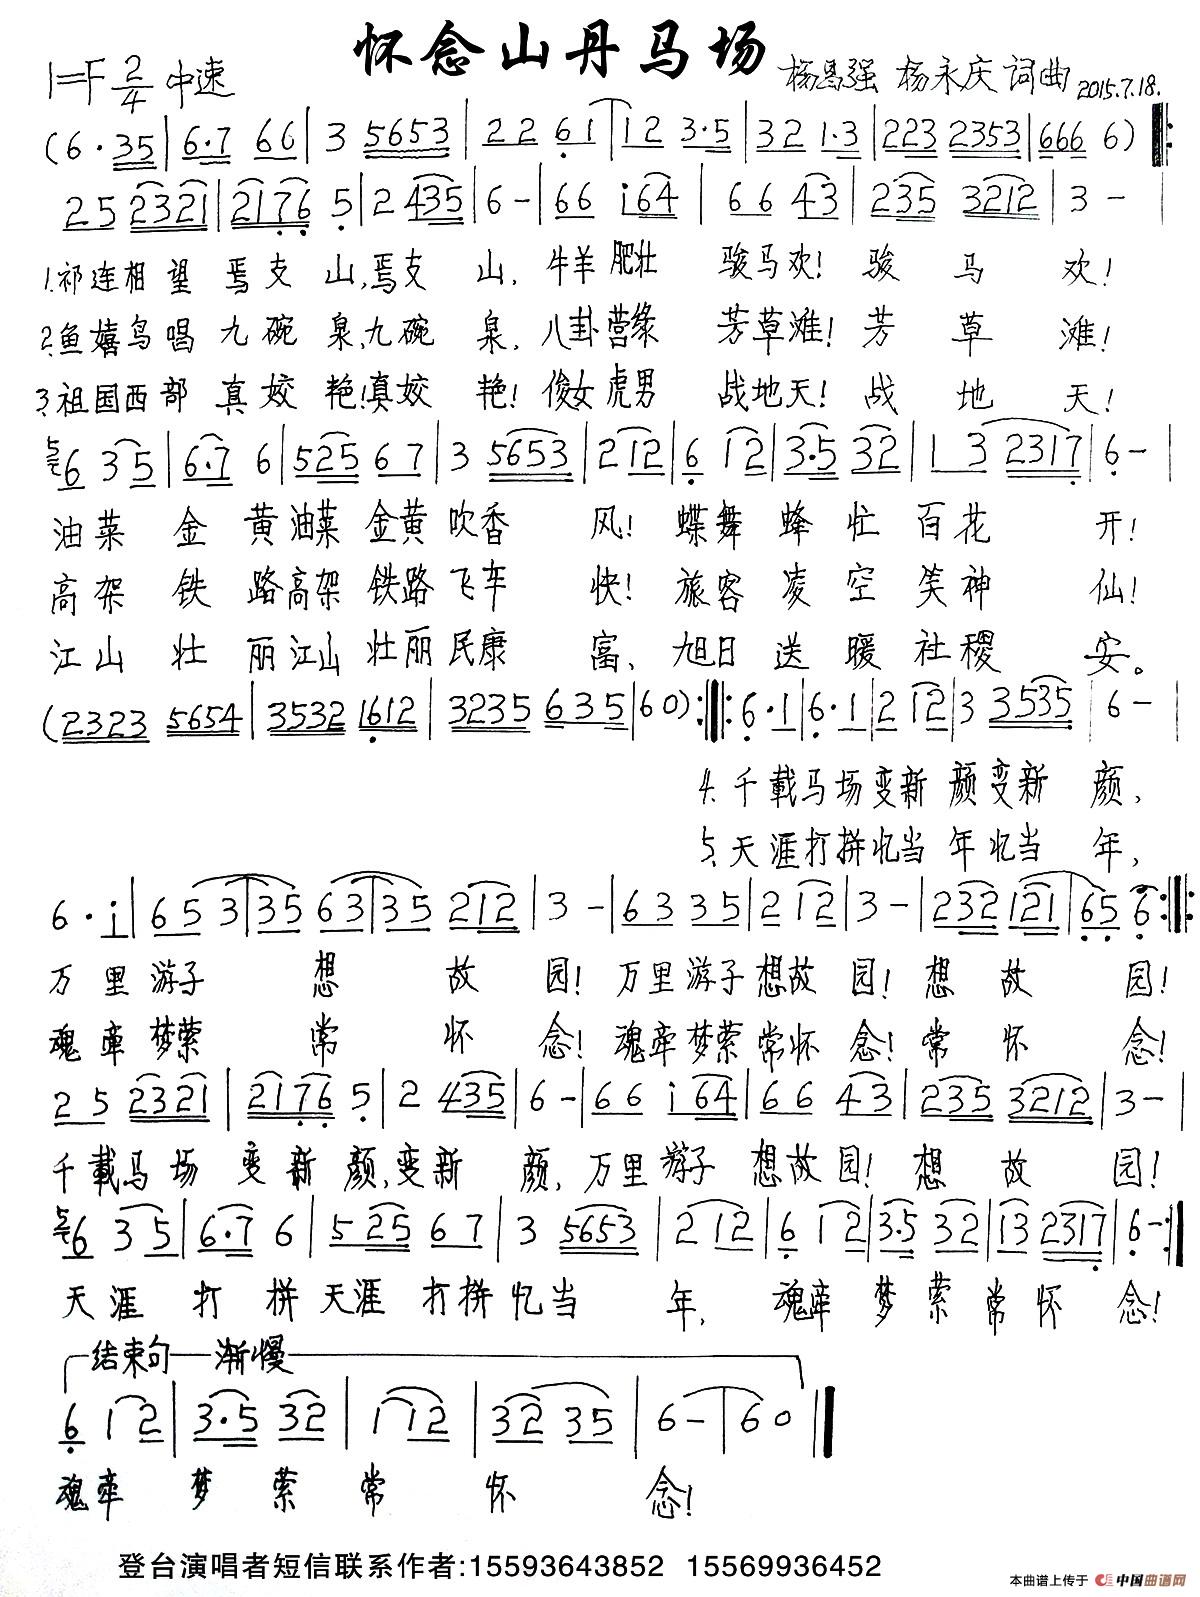 怀念山丹马场
1=F 2/4 中速
杨昌强 杨永庆 词曲 2015.7.18.
(6·35|6·7 66|3 5653|22 61|12 3·5|32 1·3|223 2353|666 6)‖:
25 2321|2176 5|2 435|6-|66 i64|66 43|235 3212|3-|
1.祁连相望 焉支山,焉支 山,牛羊肥壮 骏马欢!骏 马 欢!
2.鱼嬉鸟唱 九碗泉,九碗 泉,八卦营缘 芳草滩!芳 草 滩!
3.祖国西部 真姣艳!真姣 艳!俊女虎男 战地天!战 地 天!
5 6 35|6·7 6|525 67|3 5653|2 12|6 12|3·5 32|1 3 2317|6-|
油菜 金 黄油菜 金黄吹香 风!蝶舞 蜂 忙 百花 开!
高架 铁 路高架 铁路飞车 快!旅客 凌 空 笑神 仙!
江山 壮 丽江山 壮丽民康 富、旭日 送 暖 社稷 安。
(2323 5654|3532 1612|3235 635|60):‖:6·1|6·1|2 12|3 3535|6-|
4.千载马场变新 颜变新 颜,
5.天涯打拼忆当 年忆当 年,
6·i|65 3|35 63|35 212|3-|63 35|2 12|3-|232 121|65 6:‖
万里游子 想 故 园!万里游子想故 园!想 故 园!
魂牵梦萦 常 怀 念!魂牵梦萦常怀 念!常 怀 念!
25 2321|2176 5|2 435|6-|66 i64|66 43|235 3212|3-|
千载马场 变新颜,变新 颜,万里游子 想故园!想 故 园!
5 6 35|6·7 6|525 67|3 5653|2 12|6 12|3·5 32|13 2317|6-:‖
天涯 打 拼 天涯 打拼忆当 年,魂牵 梦 萦 常怀 念!
结束句 渐慢
6 12|3·5 32|1 12|32 35|6-|60‖
魂牵 梦 萦 常 怀 念!
登台演唱者短信联系作者:15593643852 15569936452
本曲谱上传于 中国曲谱网